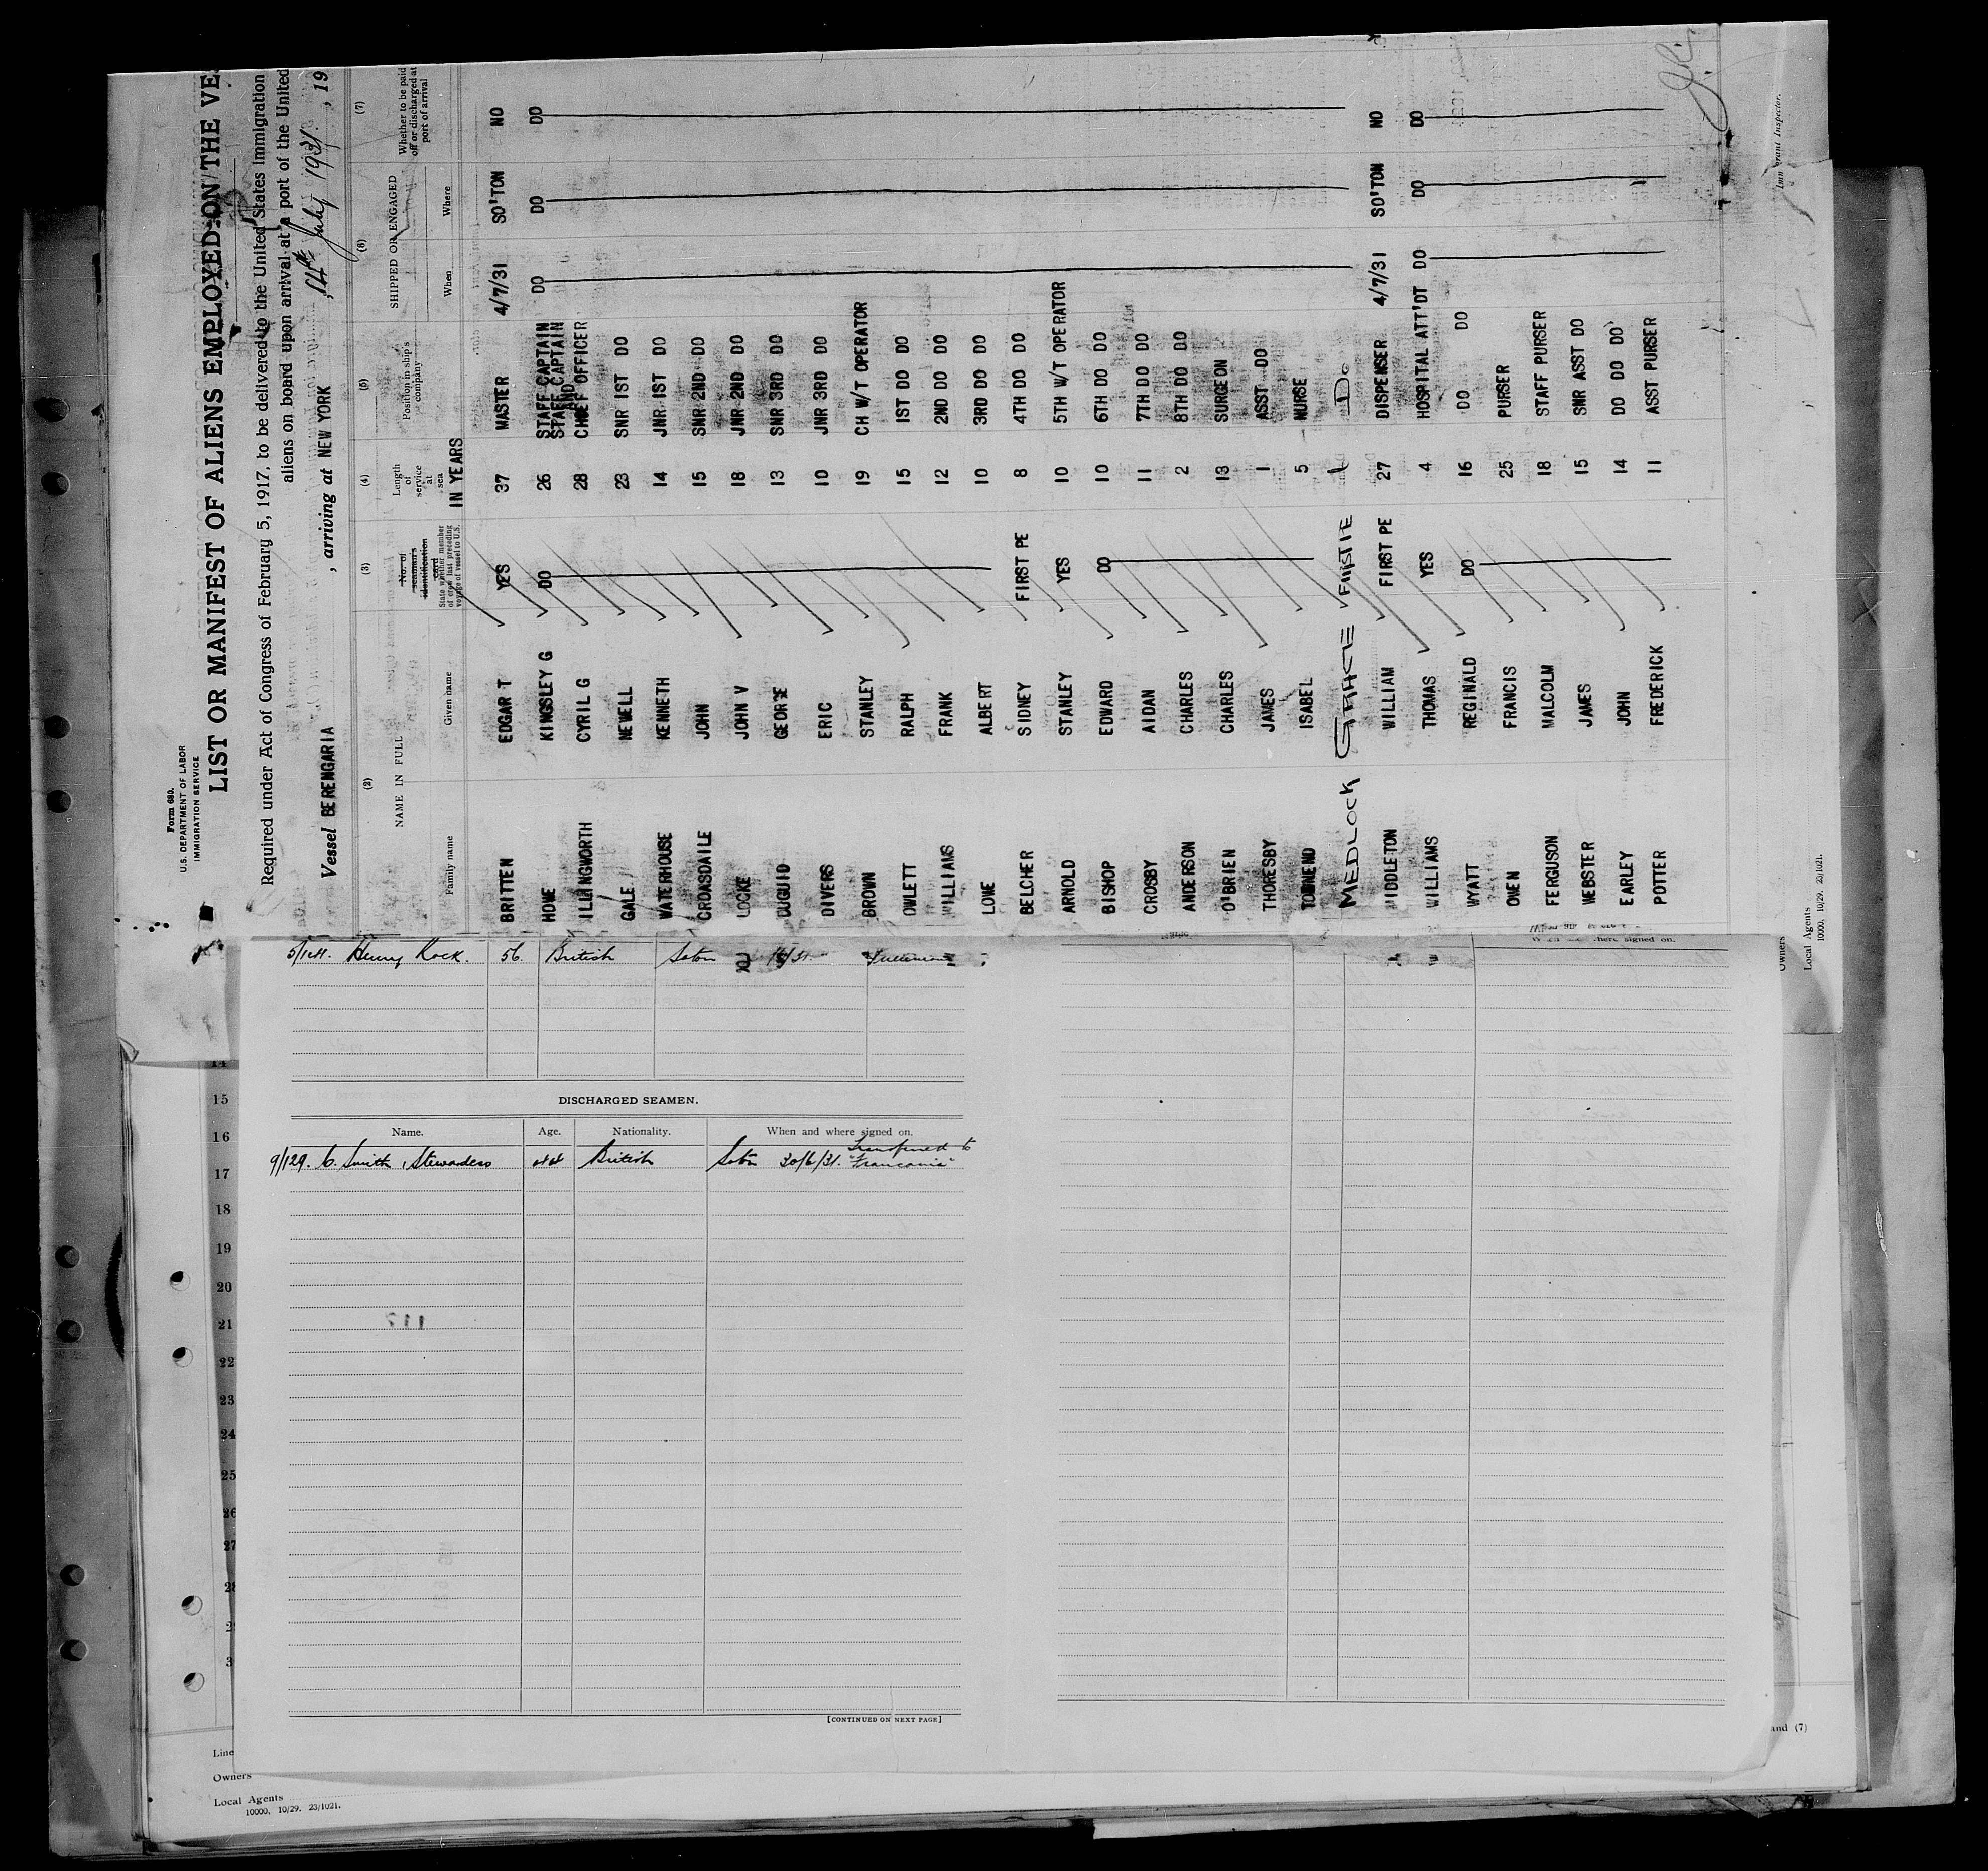 Form 680.
U.S. DEPARTMENT OF LABOR
IMMIGRATION SERVICE
LIST OR MANIFEST OF ALIENS EMPLOYED ON THE VE
Required under Act of Congress of February 5, 1917, to be delivered to the United States Immigration
aliens on board upon arrival at a port of the United
Vessel BERENGARIA , arriving at NEW YORK , July 1931. , 19
(2) (3) (4) (5) (6) (7)
NAME IN FULL
Family name Given name
No. of seaman's identification card
State whether member of crew last preceding voyage of vessel to U.S.
Length of service at sea
IN YEARS
Position in ship's company
SHIPPED OR ENGAGED
When Where
Whether to be paid off or discharged at port of arrival
BRITTEN EDGAR T YES 37 MASTER 4/7/31 SO'TON NO
HOWE KINGSLEY G DO 26 STAFF CAPTAIN DO DO DO
STAFF CAPTAIN AND
ILLINGWORTH CYRIL G 28 CHIEF OFFICER
GALE NEWELL 23 SNR 1ST DO
WATERHOUSE KENNETH 14 JNR 1ST DO
CROASDAILE JOHN 15 SNR 2ND DO
LOCKE JOHN V 18 JNR 2ND DO
DUGUID GEORGE 13 SNR 3RD DO
DIVERS ERIC 10 JNR 3RD DO
BROWN STANLEY 19 CH W/T OPERATOR
OWLETT RALPH 15 1ST DO DO
WILLIAMS FRANK 12 2ND DO DO
LOWE ALBERT 10 3RD DO DO
BELCHER SIDNEY FIRST PE 8 4TH DO DO
ARNOLD STANLEY YES 10 5TH W/T OPERATOR
BISHOP EDWARD DO 10 6TH DO DO
CROSBY AIDAN 11 7TH DO DO
ANDERSON CHARLES 2 8TH DO DO
O'BRIEN CHARLES 13 SURGEON
THORESBY JAMES 1 ASST DO
TOWNEND ISABEL 5 NURSE
MEDLOCK GRACE 1 Do
MIDDLETON WILLIAM FIRST PE 27 DISPENSER 4/7/31 SO'TON NO
WILLIAMS THOMAS YES 4 HOSPITAL ATT'DT DO DO DO
WYATT REGINALD DO 16 DO DO
OWEN FRANCIS 25 PURSER
FERGUSON MALCOLM 18 STAFF PURSER
WEBSTER JAMES 15 SNR ASST DO
EARLEY JOHN 14 DO DO DO
POTTER FREDERICK 11 ASST PURSER
Owners
Local Agents
10000, 10/29. 23/1021.
Henry Rock. 56. British Soton
here signed on.
DISCHARGED SEAMEN.
Name. Age. Nationality. When and where signed on.
9/129. C. Smith, Stewardess 44 British Soton 30/6/31. Transferred to
"Franconia"
[CONTINUED ON NEXT PAGE]
14
15
16
17
18
19
20
21
22
23
24
25
26
27
28
Line
and (7)
Owners
Local Agents
10000, 10/29. 23/1021.